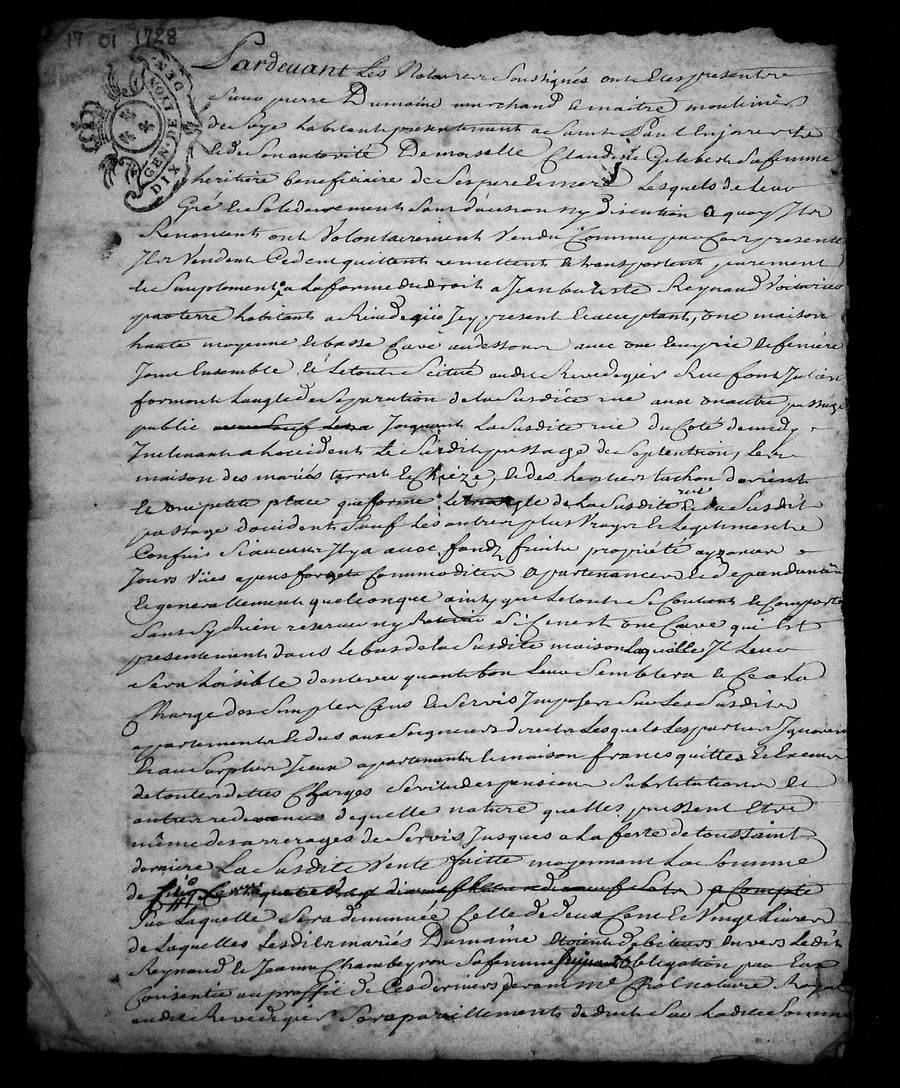 17 01 1728
GEN. DE LYON DIX DEN
Pardevant Les Notaires Soussignés ont Etes presentes
Sieur pierre Dumaine marchand & maitre moulinier
de Soye habitant presentement a Saint Paul Enjarrest &
& de Son autorité Demoiselle Claudine Gilibert Sa femme
heritiere beneficiaire de Ses pere & mere Lesquels de Leur
Gré & Solidairement Sans division ny discution a quoy Ils
Renoncent ont Volontairement Vendu Comme par Ces presentes
Ils Vendent Cedent quittent remettent & transportent purement
& Simplement a La forme du droit a Jean batiste Reynaud Voiturier
par terre habitant a Rivedegier Icy present & acceptant, une maison
haute moyenne & basse Cave au dessous avec une Ecurie & feniere
Joint Ensemble, & Le tout Scitué audit Rivedegier Rue font Julien
formant Langle de Separation de la Susditte rue avec un autre passage
public Joignant La Susdite rue du Coté de midy
Inclinant a loccident Le Susdit passage de Septentrion, Les
maison des mariés terrat & Chieze, & des heritiers tachon dorient
& une petite place que forme Langle de La Susdite rue & du Susdit
passage doccident Sauf Les autres plus Vrays & Legitimes
Confins Si aucuns Il y a avec fondz fruits proprieté aysances
Jours Vües Commodités apartenances & dependances
& generallement quelconque ainsy que Le tout Se Contient & Comporte
Sans Sy Rien reserver ny Retenir Si Ce nest une Cuve qui Est
presentement dans Le bas de la Susdite maison Laquelle Il Leur
Sera Loisible denlever quant bon Leur Semblera & Ce a La
Charge des Simples Cens & Servis Imposés Sur Les Susdits
appartements & dus aux Seigneurs directs Lesquels Les parties Ignorent
& au Surplus Iceux apartements & maison francs quittes & Exempts
de toutes dettes Charges Servitudes pensions Substitutions Et
autres redevances de quelle nature quelles puissent Etre
même des arrerages de Servis Jusques a La feste de toussaint
derniere La Susdite Vente faitte moyennant La Somme
de
Sur Laquelle Sera diminuée Celle de deux Cent & Vingt Livres
de Laquelles Lesdits mariés Dumaine Etoient debiteurs Envers Ledit
Reynaud & Jeanne Chambeyron Sa femme Suivant obligation par Eux
Consentie au proffit de Ces derniers pardevant me Chol notaire Royal
audit Rivedegier Sera pareillement deduit Sur Ladite Somme